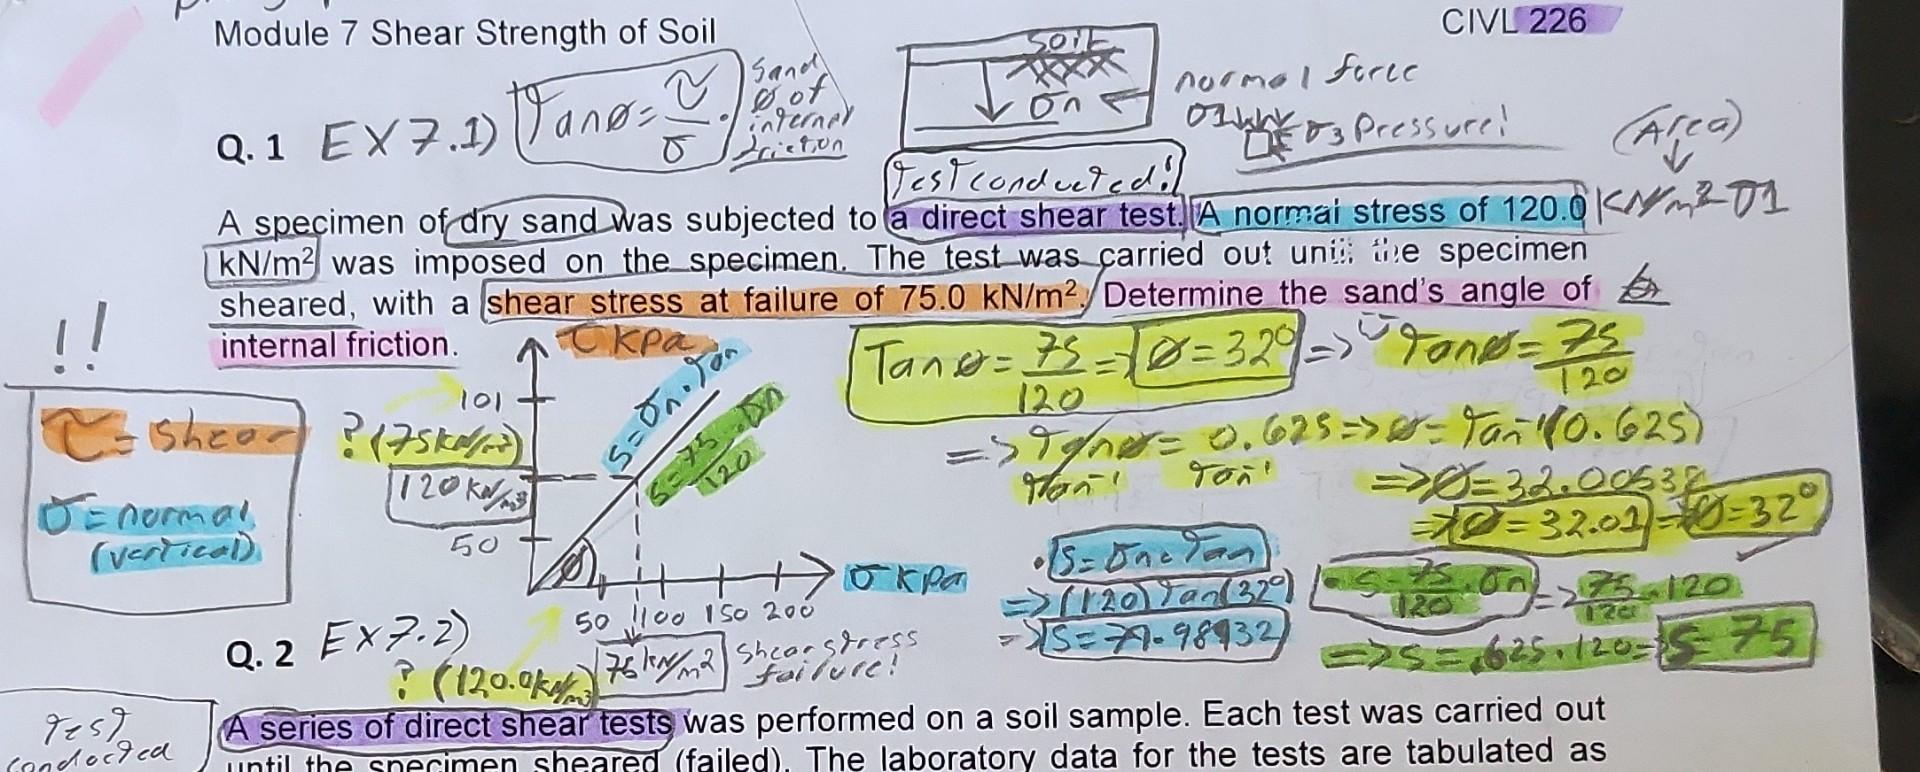 Module 7 Shear Strength of Soil
CIVL 226
Q. 1 EX 7.1) Tanø = τ/σ
Sand
ø of
internal
friction
Soil
σn
normal force
σ3 Pressure!
(Area)
Test conducted!
A specimen of dry sand was subjected to a direct shear test. A normal stress of 120.0 KN/m² σ1
kN/m² was imposed on the specimen. The test was carried out until the specimen
sheared, with a shear stress at failure of 75.0 kN/m². Determine the sand's angle of
internal friction.
!!
τ = shear
σ = normal
(vertical)
τ kpa
101
? (75kN/m²)
120 kN/m³
50
S = σn · Tan
S = 75/120 · σn
ø
50 100 150 200
σ kpa
Tanø = 75/120 => ø = 32° => Tanø = 75/120
=> Tanø = 0.625 => ø = Tan-1(0.625)
Tan-1 Tan-1
=> ø = 32.00538
=> ø = 32.01 => ø = 32°
• S = σn · Tan
=> (120) Tan(32°)
=> S = 74.98432
• S = 75/120 · σn => 75/120 · 120
=> S = .625 · 120 = S = 75
Q. 2 EX 7.2)
? (120.0kN/m³)
75 kN/m²
shear stress
failure!
Test
conducted
A series of direct shear tests was performed on a soil sample. Each test was carried out
until the specimen sheared (failed). The laboratory data for the tests are tabulated as